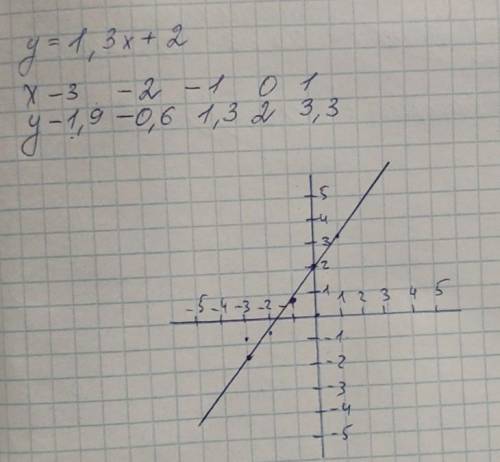 y = 1,3x + 2
x -3 -2 -1 0 1
y -1,9 -0,6 1,3 2 3,3
5
4
3
2
1
-5 -4 -3 -2 -1 1 2 3 4 5
-1
-2
-3
-4
-5